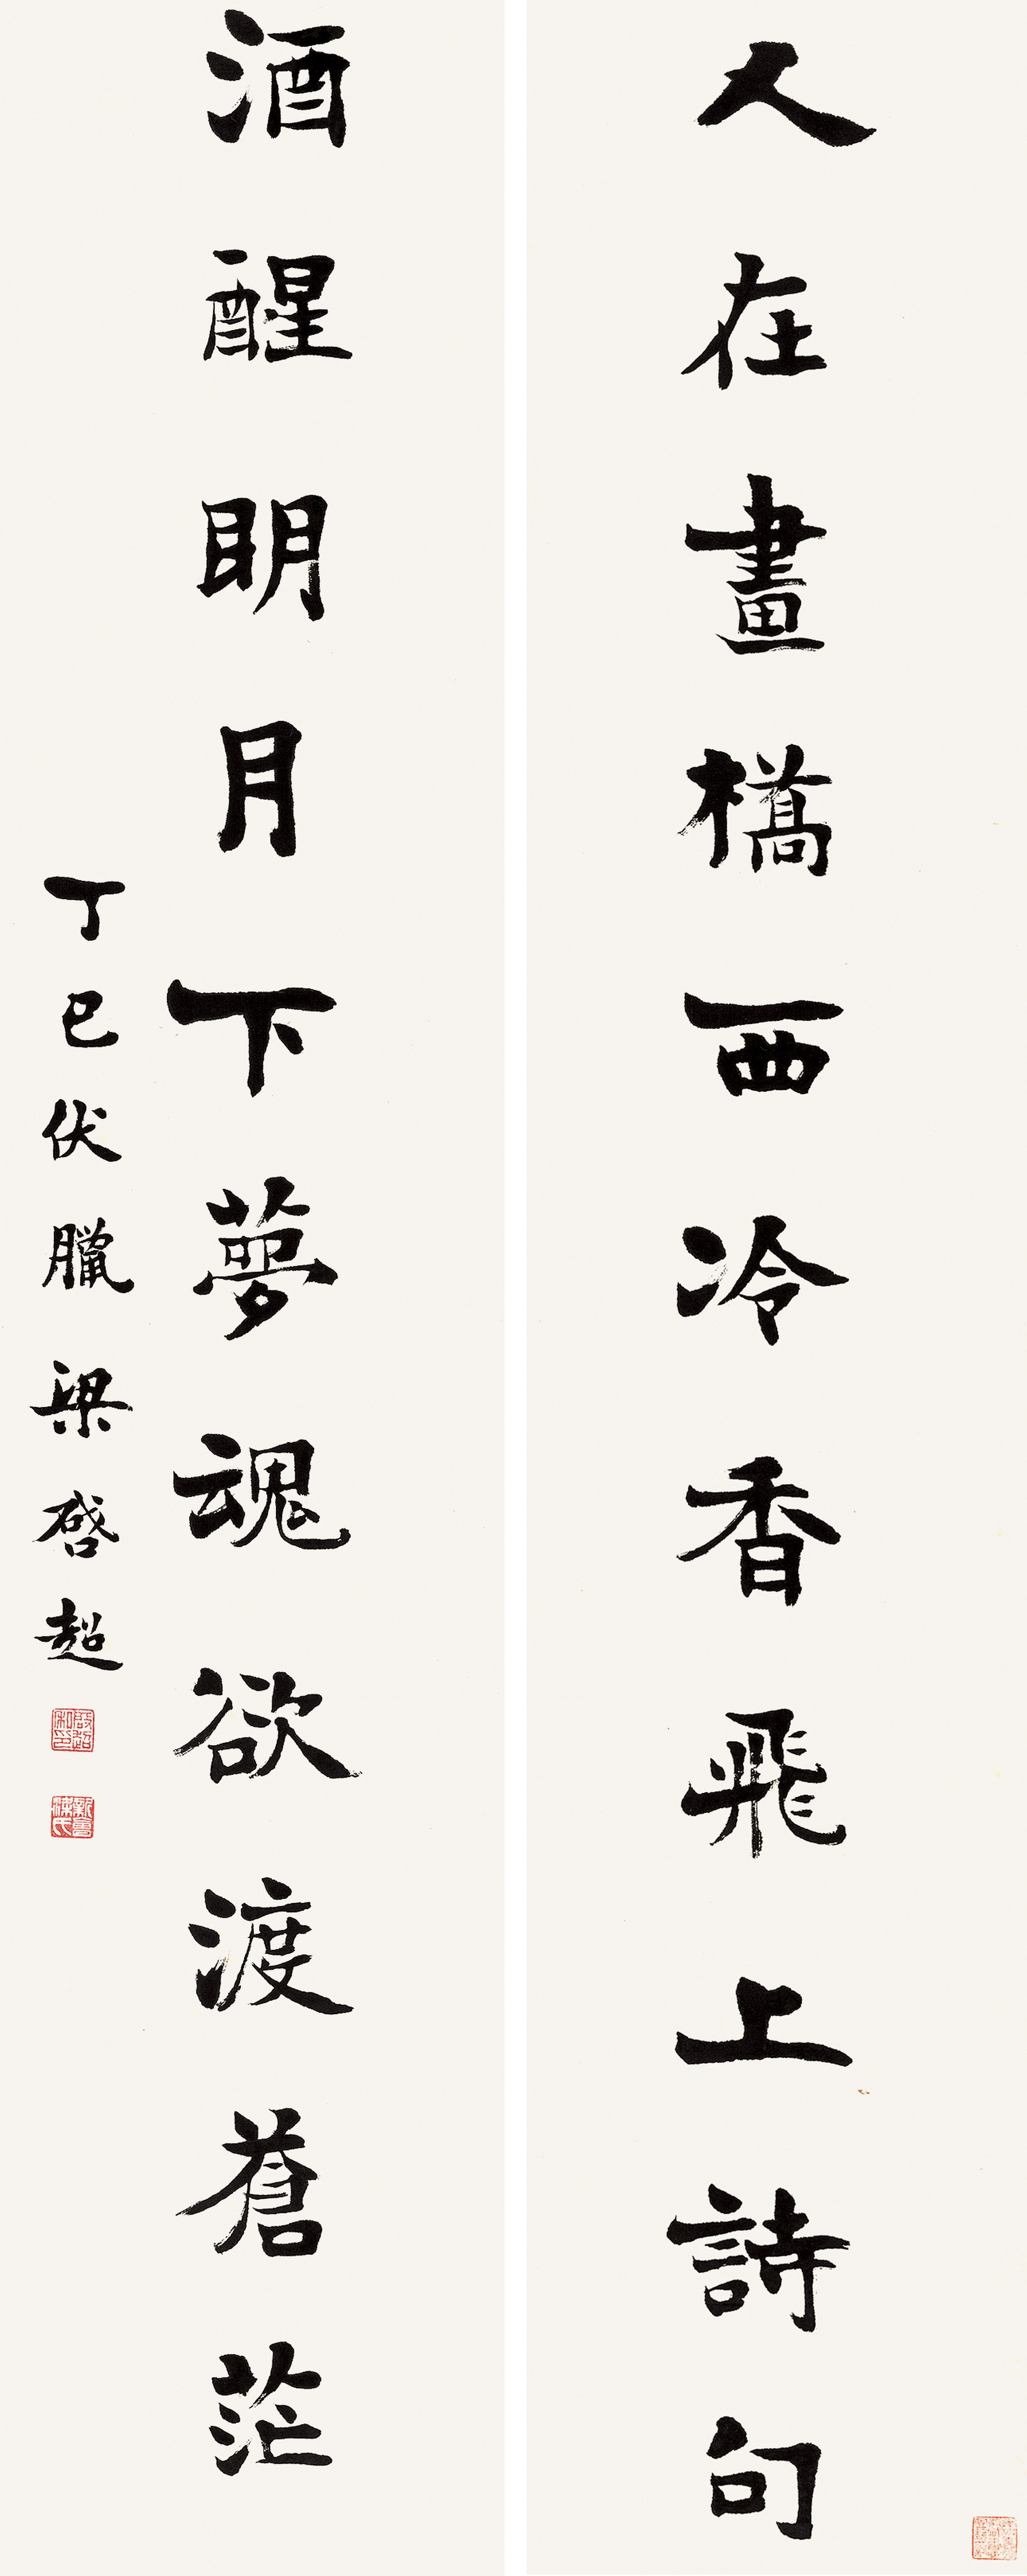 人在畫橋西冷香飛上詩句
酒醒明月下夢魂欲渡蒼茫
丁巳伏臘梁啓超
啟超私印
新會梁氏